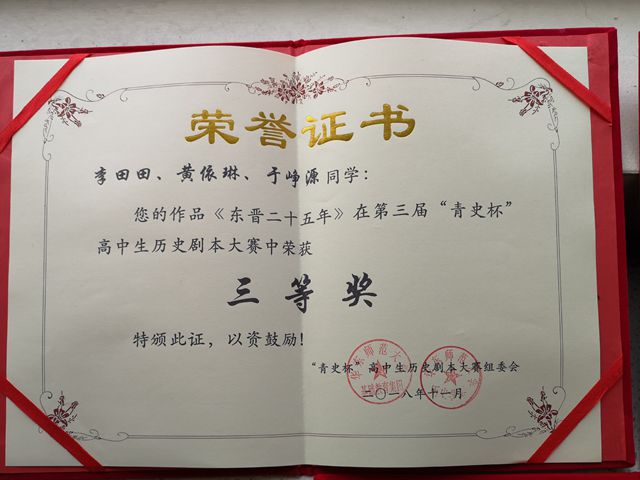 荣誉证书
李田田、黄依琳、于峥源同学：
您的作品《东晋二十五年》在第三届“青史杯”
高中生历史剧本大赛中荣获
三等奖
特颁此证，以资鼓励！
“青史杯”高中生历史剧本大赛组委会
二〇一八年十一月